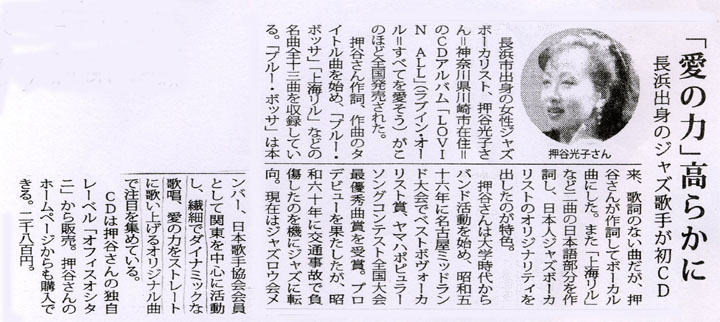 「愛の力」高らかに
長浜出身のジャズ歌手が初CD
押谷光子さん
長浜市出身の女性ジャズ
ボーカリスト、押谷光子さ
ん＝神奈川県川崎市在住＝
のCDアルバム「LOVI
N ALL」（ラブイン・オー
ル＝すべてを愛そう）がこ
のほど全国発売された。
押谷さん作詞、作曲のタ
イトル曲を始め、「ブルー・
ボッサ」「上海リル」などの
名曲全十三曲を収録してい
る。「ブルー・ボッサ」は本
来、歌詞のない曲だが、押
谷さんが作詞してボーカル
曲にした。また「上海リル」
など二曲の日本語部分を作
詞し、日本人ジャズボーカ
リストのオリジナリティを
出したのが特色。
押谷さんは大学時代から
バンド活動を始め、昭和五
十六年に名古屋ミッドラン
ド大会でベストボヴォーカ
リスト賞、ヤマハポピュラー
ソングコンテスト全国大会
最優秀曲賞を受賞。プロ
デビューを果たしたが、昭
和六十年に交通事故で負
傷したのを機にジャズに転
向。現在はジャズロウ会メ
ンバー、日本歌手協会会員
として関東を中心に活動
し、繊細でダイナミックな
歌唱、愛の力をストレート
に歌い上げるオリジナル曲
で注目を集めている。
CDは押谷さんの独自
レーベル「オフィスオシタ
ニ」から販売。押谷さんの
ホームページからも購入で
きる。二千八百円。